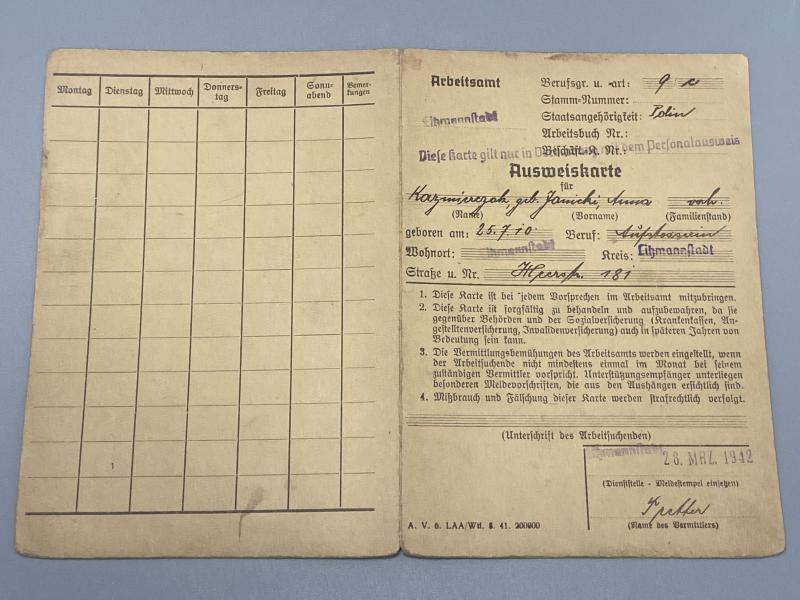 Montag Dienstag Mittwoch Donners-tag Freitag Sonn-abend Bemer-kungen
Arbeitsamt
Berufsgr. u. -art: 9 c
Stamm-Nummer:
Litzmannstadt
Staatsangehörigkeit: Polin
Arbeitsbuch Nr.:
Diese Karte gilt nur in dem Personalausweis
Beschäft.-R. Nr.:
Ausweiskarte
für
geb. Janicki, Anna verh.
(Name) (Vorname) (Familienstand)
geboren am: 25.7.10. Beruf:
Wohnort: Litzmannstadt Kreis: Litzmannstadt
Straße u. Nr. Heerstr. 181
1. Diese Karte ist bei jedem Vorsprechen im Arbeitsamt mitzubringen.
2. Diese Karte ist sorgfältig zu behandeln und aufzubewahren, da sie
gegenüber Behörden und der Sozialversicherung (Krankenkassen, An-
gestelltenversicherung, Invalidenversicherung) auch in späteren Jahren von
Bedeutung sein kann.
3. Die Vermittlungsbemühungen des Arbeitsamts werden eingestellt, wenn
der Arbeitsuchende nicht mindestens einmal im Monat bei seinem
zuständigen Vermittler vorspricht. Unterstützungsempfänger unterliegen
besonderen Meldevorschriften, die aus den Aushängen ersichtlich sind.
4. Mißbrauch und Fälschung dieser Karte werden strafrechtlich verfolgt.
(Unterschrift des Arbeitsuchenden)
Litzmannstadt 28. MRZ. 1942
(Dienststelle - Meldestempel einsetzen)
A. V. 6. LAA/Wtl. 8. 41. 200000
(Name des Vermittlers)